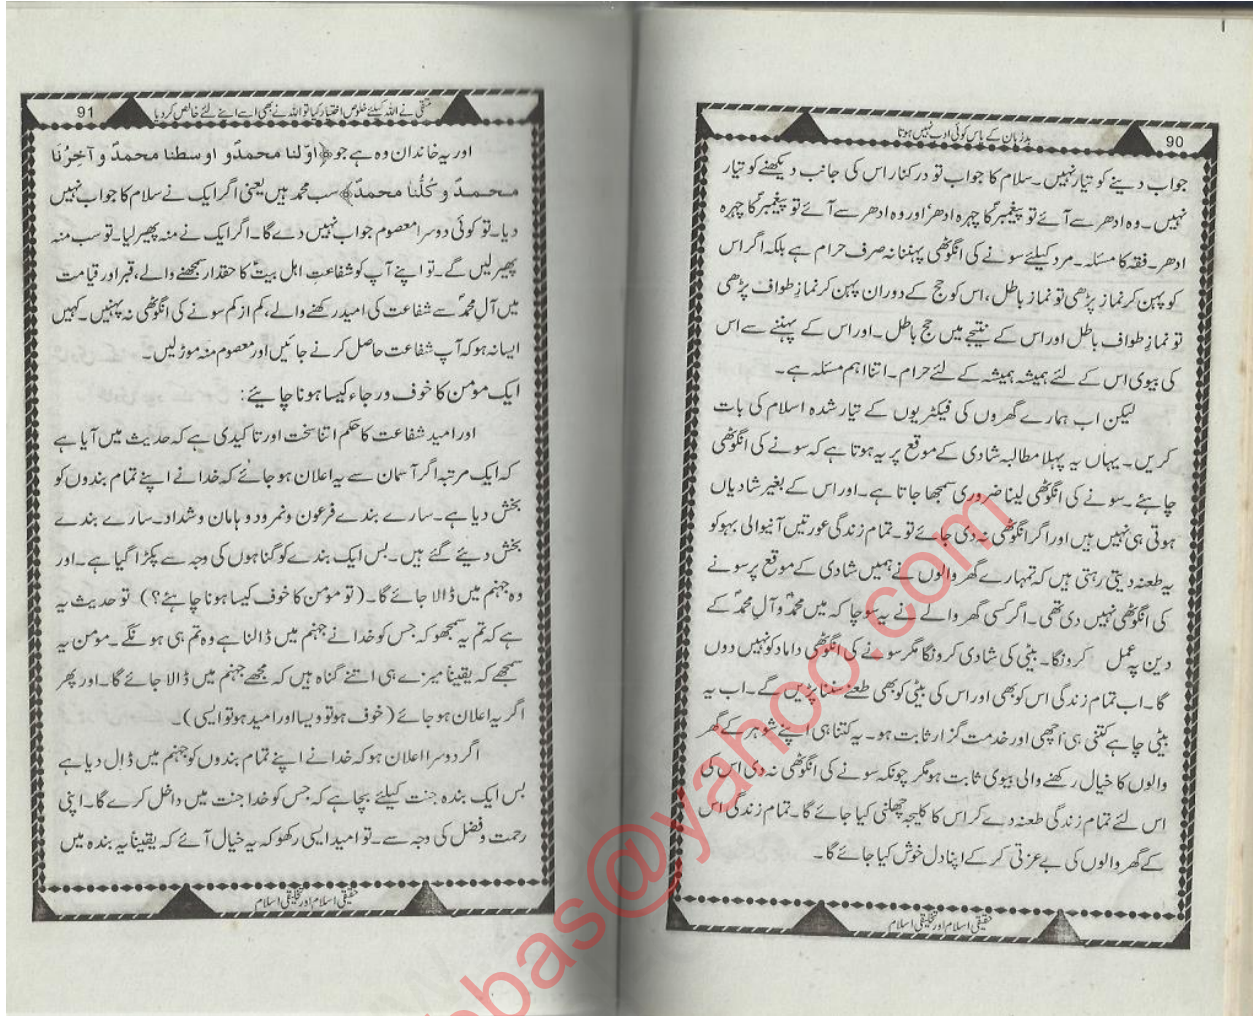 بدزبان کے پاس کوئی ادب نہیں ہوتا
90
جواب دینے کو تیار نہیں۔ سلام کا جواب تو درکنار اس کی جانب دیکھنے کو تیار
نہیں۔ وہ ادھر سے آئے تو پیغمبرؐ کا چہرہ ادھرٗ اور وہ ادھر سے آئے تو پیغمبرؐ کا چہرہ
ادھر۔ فقہ کا مسئلہ۔ مرد کیلئے سونے کی انگوٹھی پہننا نہ صرف حرام ہے بلکہ اگر اس
کو پہن کر نماز پڑھی تو نماز باطل، اس کو حج کے دوران پہن کر نمازِ طواف پڑھی
تو نمازِ طواف باطل اور اس کے نتیجے میں حج باطل۔ اور اس کے پہننے سے اس
کی بیوی اس کے لئے ہمیشہ ہمیشہ کے لئے حرام۔ اتنا اہم مسئلہ ہے۔
لیکن اب ہمارے گھروں کی فیکٹریوں کے تیار شدہ اسلام کی بات
کریں۔ یہاں یہ پہلا مطالبہ شادی کے موقع پر یہ ہوتا ہے کہ سونے کی انگوٹھی
چاہئے۔ سونے کی انگوٹھی لینا ضروری سمجھا جاتا ہے۔ اور اس کے بغیر شادیاں
ہوتی ہی نہیں ہیں اور اگر انگوٹھی نہ دی جائے تو۔ تمام زندگی عورتیں آنیوالی بہو کو
یہ طعنہ دیتی رہتی ہیں کہ تمہارے گھر والوں نے ہمیں شادی کے موقع پر سونے
کی انگوٹھی نہیں دی تھی۔ اگر کسی گھر والے نے یہ سوچا کہ میں محمدؐ و آلِ محمدؐ کے
دین پہ عمل کرونگا۔ بیٹی کی شادی کرونگا مگر سونے کی انگوٹھی داماد کو نہیں دوں
گا۔ اب تمام زندگی اس کو بھی اور اس کی بیٹی کو بھی طعنے سننا پڑیں گے۔ اب یہ
بیٹی چاہے کتنی ہی اچھی اور خدمت گزار ثابت ہو۔ یہ کتنا ہی اپنے شوہر کے گھر
والوں کا خیال رکھنے والی بیوی ثابت ہو مگر چونکہ سونے کی انگوٹھی نہ دی اس کی
اس لئے تمام زندگی طعنہ دے کر اس کا کلیجہ چھلنی کیا جائے گا۔ تمام زندگی اس
کے گھر والوں کی بے عزتی کر کے اپنا دل خوش کیا جائے گا۔
حقیقی اسلام اور تخلیقی اسلام
متقی نے اللہ کیلئے خلوص اختیار کیا تو اللہ نے بھی اسے اپنے لئے خالص کر دیا
91
اور یہ خاندان وہ ہے جو ﴿اوّلنا محمدؐ و اوسطنا محمدؐ و آخِرُنَا
محمدؐ و کُلُّنا محمدؐ﴾ سب محمد ہیں یعنی اگر ایک نے سلام کا جواب نہیں
دیا۔ تو کوئی دوسرا معصوم جواب نہیں دے گا۔ اگر ایک نے منہ پھیر لیا۔ تو سب منہ
پھیر لیں گے۔ تو اپنے آپ کو شفاعتِ اہل بیتؑ کا حقدار سمجھنے والے، قبر اور قیامت
میں آلِ محمدؐ سے شفاعت کی امید رکھنے والے، کم از کم سونے کی انگوٹھی نہ پہنیں۔ کہیں
ایسا نہ ہو کہ آپ شفاعت حاصل کرنے جائیں اور معصوم منہ موڑ لیں۔
ایک مومن کا خوف و رجاء کیسا ہونا چاہئے:
اور امید شفاعت کا حکم اتنا سخت اور تاکیدی ہے کہ حدیث میں آیا ہے
کہ ایک مرتبہ اگر آسمان سے یہ اعلان ہو جائے کہ خدا نے اپنے تمام بندوں کو
بخش دیا ہے۔ سارے بندے فرعون و نمرود و ہامان و شداد۔ سارے بندے
بخش دیئے گئے ہیں۔ بس ایک بندے کو گناہوں کی وجہ سے پکڑا گیا ہے۔ اور
وہ جہنم میں ڈالا جائے گا۔ (تو مومن کا خوف کیسا ہونا چاہئے؟) تو حدیث یہ
ہے کہ تم یہ سمجھو کہ جس کو خدا نے جہنم میں ڈالنا ہے وہ تم ہی ہونگے۔ مومن یہ
سمجھے کہ یقیناً میرے ہی اتنے گناہ ہیں کہ مجھے جہنم میں ڈالا جائے گا۔ اور پھر
اگر یہ اعلان ہو جائے (خوف ہو تو ویسا اور امید ہو تو ایسی)۔
اگر دوسرا اعلان ہو کہ خدا نے اپنے تمام بندوں کو جہنم میں ڈال دیا ہے
بس ایک بندہ جنت کیلئے بچا ہے کہ جس کو خدا جنت میں داخل کرے گا۔ اپنی
رحمت و فضل کی وجہ سے۔ تو امید ایسی رکھو کہ یہ خیال آئے کہ یقیناً یہ بندہ میں
حقیقی اسلام اور تخلیقی اسلام
bas@yahoo.com